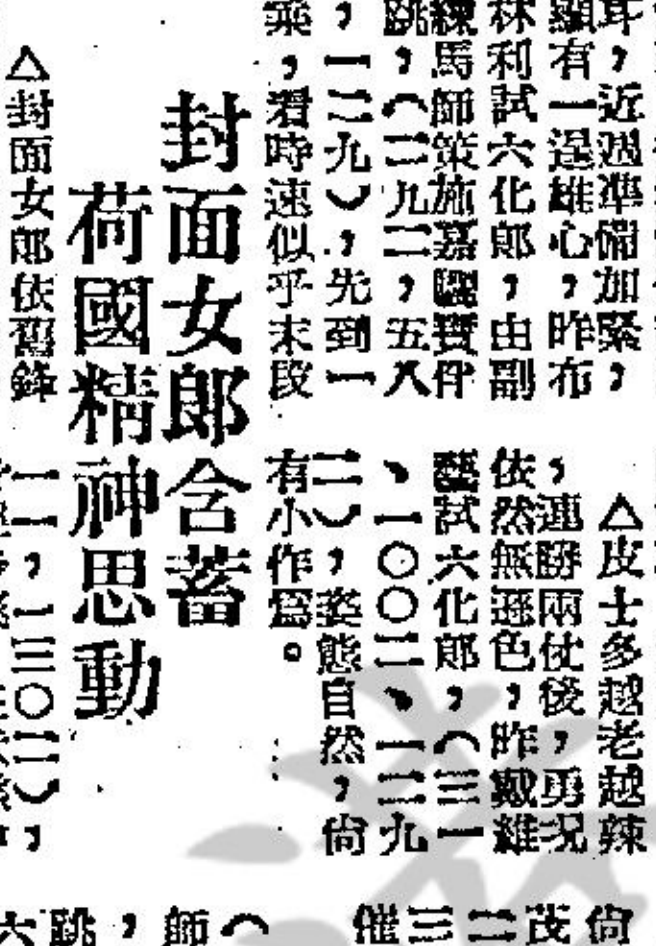 耳，近週準備加緊，
顯有一逞雄心，昨布
林利試六化郎，由副
練馬師策施嘉驪寶伴
跳，（二九二，五八
，一二九），先到一
乘，看時速似乎末段
△皮士多越老越辣
，連勝兩仗後，勇況
依然無遜色，昨戴維
藝試六化郎，（三一
、一〇〇二、一二九
二），姿態自然，尙
有小作爲。
封面女郎含蓄
荷國精神思動
△封面女郎依舊鋒
一一，一三〇二），
尙
茂
二
三
催
（
師
，
跳
六